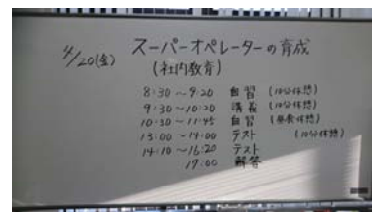 4/20(金) スーパーオペレーターの育成
(社内教育)
8:30～9:20 自習 (10分休憩)
9:30～10:20 講義 (10分休憩)
10:30～11:45 自習 (昼食休憩)
13:00～14:00 テスト (10分休憩)
14:10～16:20 テスト
17:00 解答